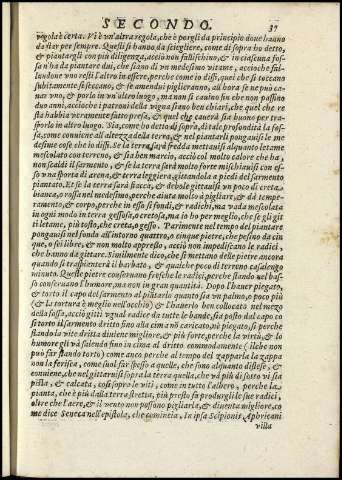 SECONDO. 37
regola è certa. Vi è vn'altra regola, che è porgli da principio doue hanno
da star per sempre. Questi si hanno da sciegliere, come di sopra ho detto,
e piantargli con più diligenza, acciò non fallischino, & in ciascuna fos-
sa n'ha da piantare dui, che siano di vn medesimo vitame, acciò che fal-
lendone vno resti l'altro in essere, perche come io dissi, quei che si toccano
subitamente si seccano, & se amendui piglieranno, all'hora se ne può ca-
nar vno, e porlo in vn'altro luogo, ma non si cauino fin che non passino
due anni, acciò che i patroni della vigna stiano ben chiari, che quel che re
sta habbia veramente fatto presa, & quel che cauerà sia buono per tra-
sporlo in altro luogo. Sia, come ho detto di sopra, di tale profondità la fos-
sa, come conuiene all'altezza della terra, & nel piantarli pongauisi le me
desime cose che io dissi. Se la terra sarà fredda mettauisi alquanto letame
mescolato con terreno, & sia ben marcio, acciò col molto calore che ha,
non scaldi il sarmento, & se la terra sarà molto forte mischiauisi con es-
so vna sporta di arena, & terra leggiera, gittandola a piedi del sarmento
piantato. Et se la terra sarà fiacca, & debole gittauisi vn poco di creta
bianca, o rossa nel medesimo, perche aiuta molto à pigliare, & dà tempe-
ramento, & corpo, perche in esso si fondi, & radichi, ma vada mescolata
in ogni modo in terra gessosa, o cretosa, ma io ho per meglio, che se gli git
ti letame, più tosto, che creta, o gesso. Parimente nel tempo del piantare
pongauisi nel fondo all'intorno quattro, o cinque pietre, che pesino da cin
que, o sei libre, & non molto appresso, acciò non impediscano le radici,
che hanno da gittare. Similmente dico, che si mettano delle pietre ancora
quando si traspienterà il barbato, & qualche poco di terreno casalengo
minuto. Queste pietre conseruano fresche le radici, perche stando nel bas-
so conseruano l'humore, ma non in gran quantità. Dopo l'hauer piegato,
& torto il capo del sarmento al piantarlo quanto sia vn palmo, o poco più
(& la tortura è meglio nell'occhio) & l'haueran ben collocato nel mezo
della fossa, acciò gitti vgual radice da tutte le bande, sia posto dal capo co
si torto il sarmento dritto fino alla cima nò caricato, nè piegato, si perche
stando la vite dritta diuiene migliore, e più forte, perche la virtù, & lo
humore gli và salendo fino in cima al dritto commodamente (ilche non
può far stando torto) come anco perche al tempo del zapparla la zappa
non la ferisca, come suol far spesso a quelle, che sono alquanto distese, &
conuiene, che nel gittaruisi sopra la terra quella, che và più di sotto vi sia
pista, & calcata, così sopra le viti, come in tutto l'albero, perche la
pianta, che è più dalla terra stretta, più presto fa produrgli le sue radici,
oltre che l'aere, & il vento non possono pigliarla, & diuenta migliore, co
me dice Seneca nell'epistola, che comincia, In ipsa Scipionis Aphricani
villa